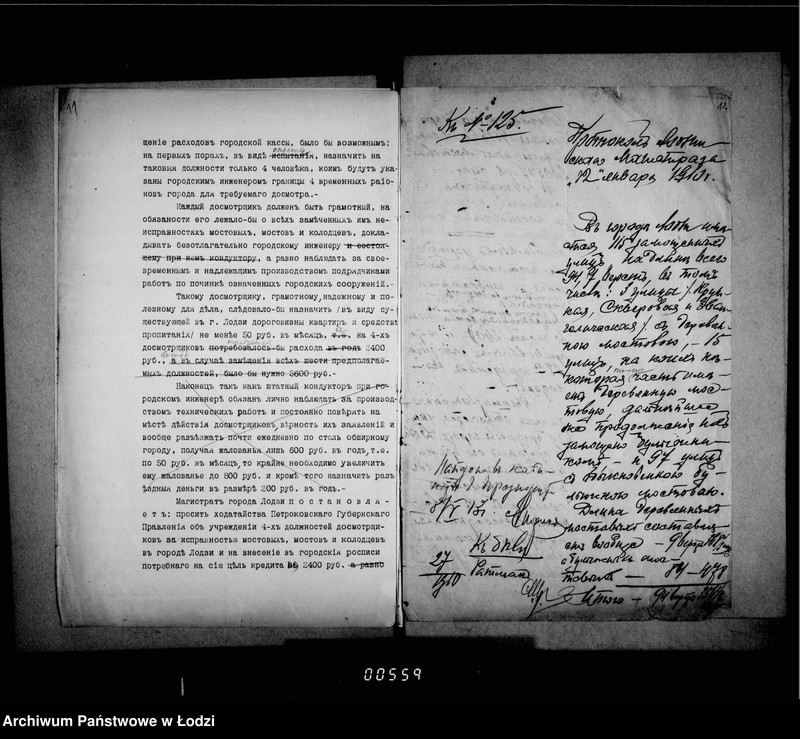 11
щеніе расходовъ городской кассы, было бы возможнымъ:
на первыхъ порахъ, въ видѣ испытанія, назначить на
таковыя должности только 4 человѣка, коимъ будутъ ука
заны городскимъ инженеромъ границы 4 временныхъ раіо-
новъ города для требуемаго досмотра.-
Каждый досмотрщикъ долженъ быть грамотный, на
обязаности его лежало-бы о всѣхъ замѣченныхъ имъ не-
исправностяхъ мостовыхъ, мостовъ и колодцевъ, докла-
дывать безотлагательно городскому инженеру и состоя-
щему при немъ кондуктору, а равно наблюдать за свое-
временнымъ и надлежащимъ производствомъ подрядчиками
работъ по починкѣ означенныхъ городскихъ сооруженій.-
Такому досмотрщику, грамотному, надежному и по-
лезному для дѣла, слѣдовало-бы назначить /въ виду су-
ществующей въ г. Лодзи дороговизны квартиръ и средствъ
пропитанія/ не менѣе 50 руб. въ мѣсяцъ, т.е. на 4-хъ
досмотрщиковъ потребовалось-бы расхода въ годъ 2400
руб., а въ случаѣ замѣщенія всѣхъ шести предполагае-
мыхъ должностей, было бы нужно 3600 руб.-
Наконецъ такъ какъ штатный кондукторъ при го-
родскомъ инженерѣ обязанъ лично наблюдать за производ-
ствомъ техническихъ работъ и постоянно повѣрять на
мѣстѣ дѣйствія досмотрщиковъ, вѣрность ихъ заявленій и
вообще разъѣзжать почти ежедневно по столь обширному
городу, получая жалованья лишь 600 руб. въ годъ, т.е.
по 50 руб. въ мѣсяцъ, то крайне необходимо увеличить
ему жалованье до 800 руб. и кромѣ того назначить разъ
ѣздныя деньги въ размѣрѣ 200 руб. въ годъ.-
Магистратъ города Лодзи п о с т а н о в л я -
е т ъ: просить ходатайства Петроковскаго Губернскаго
Правленія объ учрежденіи 4-хъ должностей досмотрщи-
ковъ за исправностью мостовыхъ, мостовъ и колодцевъ
въ городѣ Лодзи и на внесеніе въ городскія росписи
потребнаго на сію цѣль кредита 2400 руб. а равно
12
Къ № 125.
Протоколъ Лодзин
скаго Магистрата
"12" января 1913 г.
Въ городѣ Лодзи имѣ
ется 115 замощенныхъ
улицъ, длина всего
94,7 верстъ, въ томъ
числѣ: 3 улицы /Круц-
кая, Скверовая и Еван
гелическая/ съ деревян-
ною мостовою, - 15
улицъ, на коихъ нѣ-
которая часть имѣ-
етъ деревянную мос-
товую, дальнѣйшее
продолженіе ихъ
замощено булыжни-
комъ - и 97 улицъ
съ обыкновенною бу-
лыжною мостовою.
Длина деревянныхъ
мостовыхъ составля-
етъ
84 - 478
Итого -
Ратманъ
27
00559
Archiwum Państwowe w Łodzi